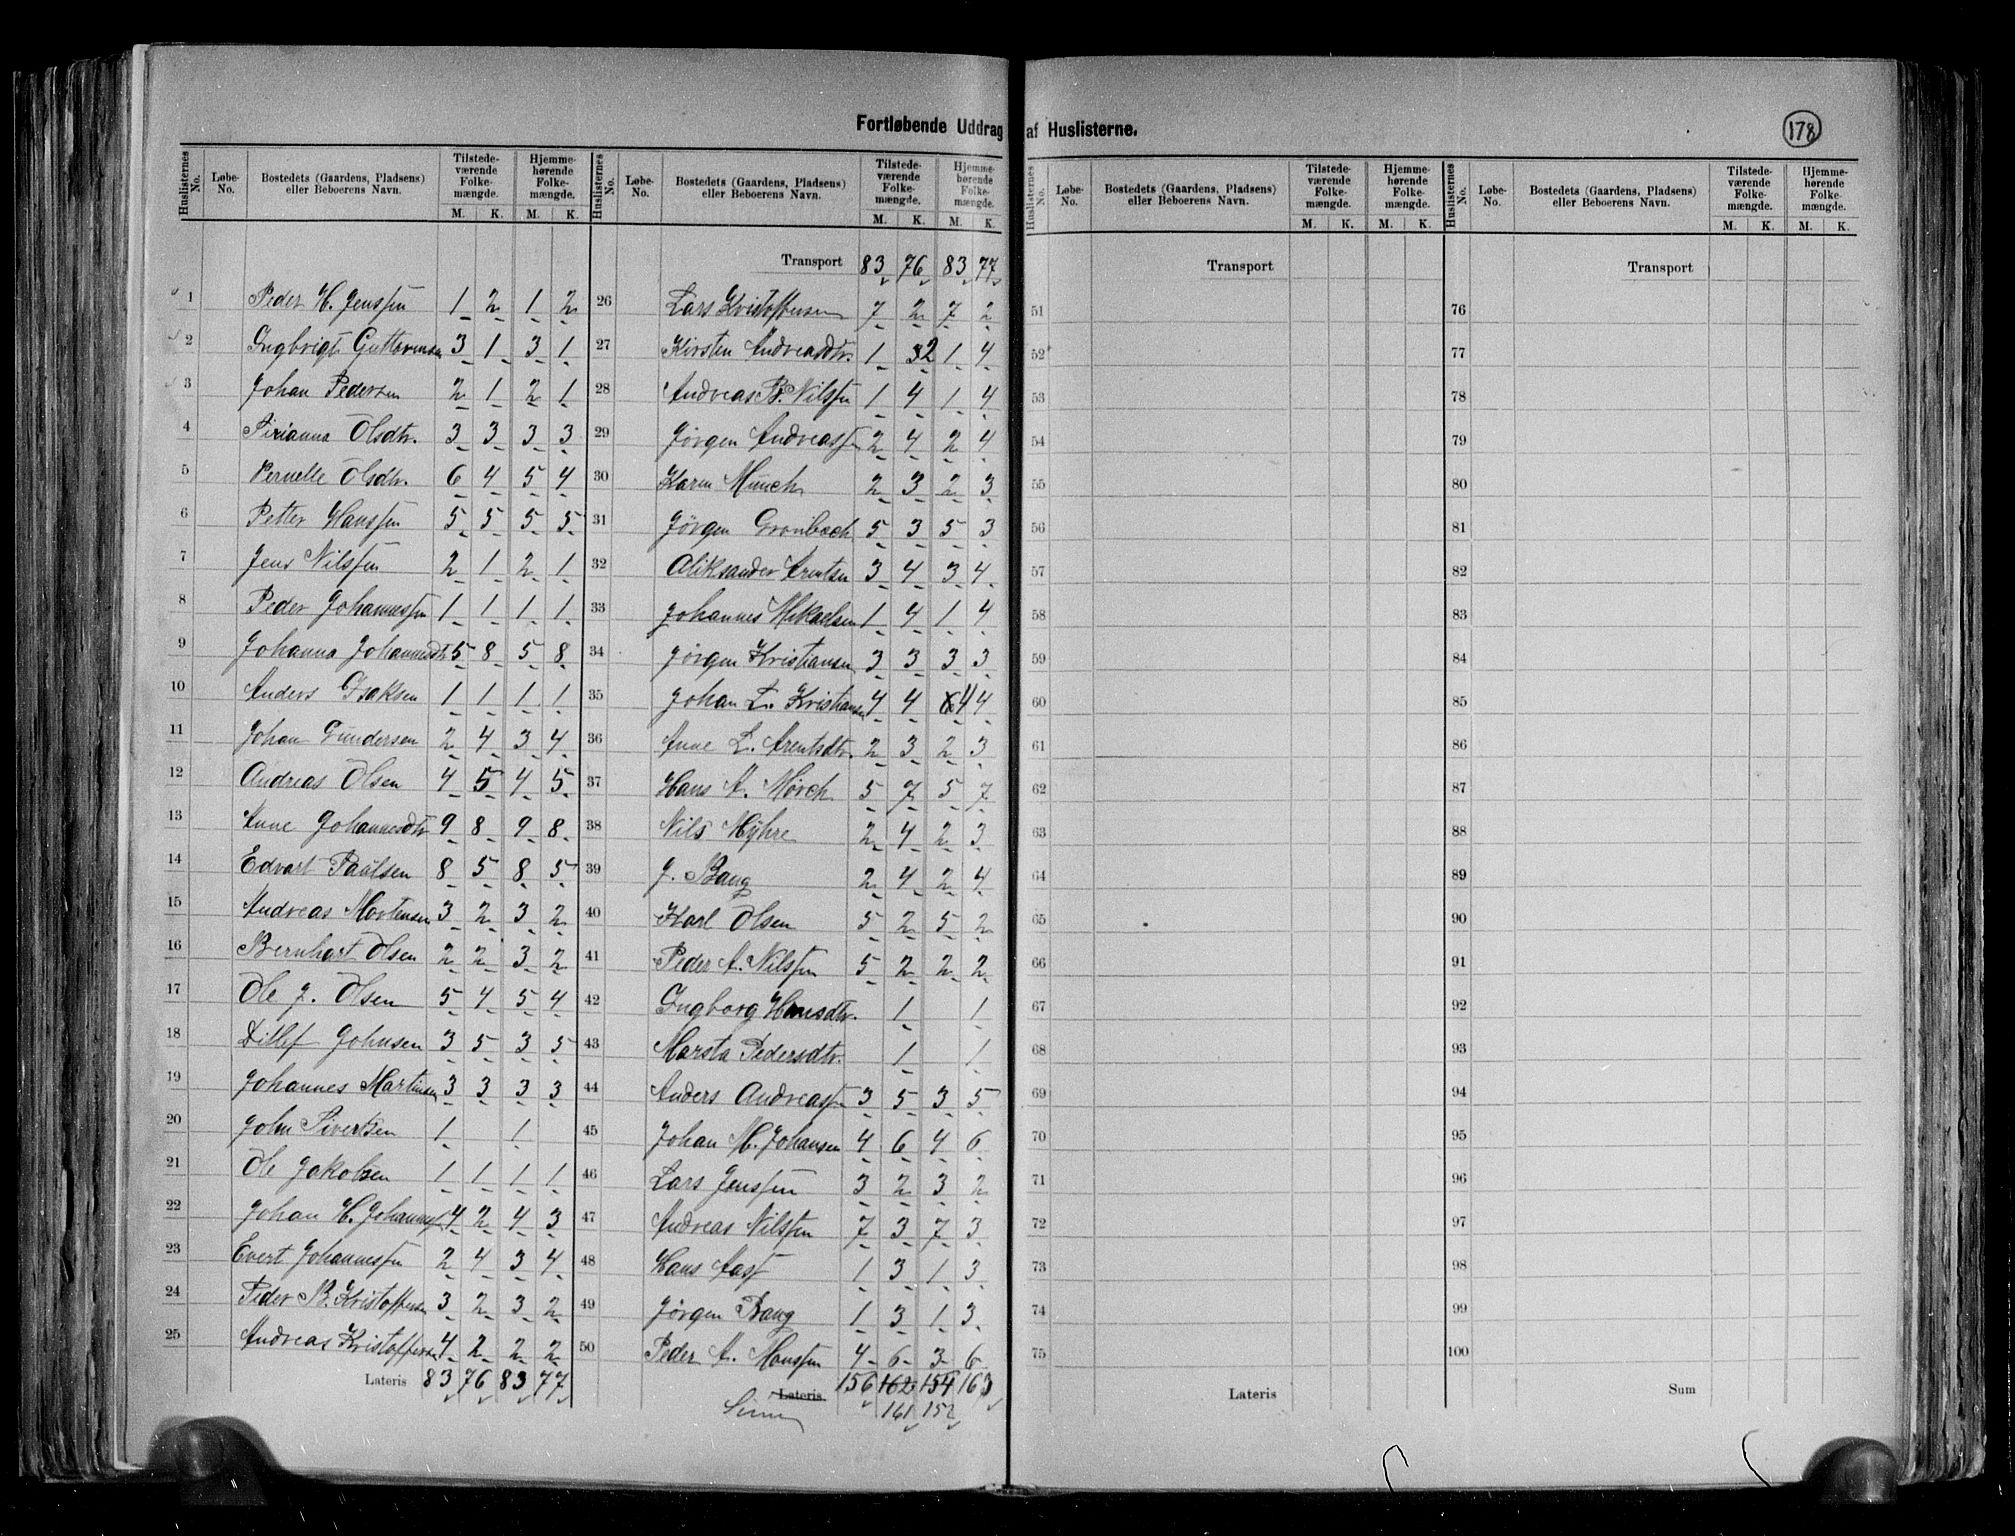 Fortløbende Uddrag af Huslisterne.
178
Huslisternes No. Løbe-No. Bostedets (Gaardens, Pladsens) eller Beboerens Navn. Tilstede-værende Folke-mængde. M. K. Hjemme-hørende Folke-mængde. M. K.
1 Peder H. Jenssen 1 2 1 2
2 Ingbrigt Guttormsen 3 1 3 1
3 Johan Pedersen 2 1 2 1
4 Pirianna Olsdtr. 3 3 3 3
5 Pernelle Olsdtr. 6 4 5 4
6 Petter Hanssen 5 5 5 5
7 Jens Nilssen 2 1 2 1
8 Peder Johannessen 1 1 1 1
9 Johanna Johannesdtr 5 8 5 8
10 Anders Isaksen 1 1 1 1
11 Johan Gundersen 2 4 3 4
12 Andreas Olsen 4 5 4 5
13 Anne Johannesdtr 9 8 9 8
14 Edvart Paalsen 8 5 8 5
15 Andreas Mortensen 3 2 3 2
16 Bernhart Olsen 2 2 3 2
17 Ole J. Olsen 5 4 5 4
18 Ditlef Johnsen 3 5 3 5
19 Johannes Martinsen 3 3 3 3
20 John Sivertsen 1 1
21 Ole Jakobsen 1 1 1 1
22 Johan H. Johanness 4 2 4 3
23 Evert Johannessen 2 4 3 4
24 Peder B. Kristoffersen 3 2 3 2
25 Andreas Kristoffersen 4 2 2 2
Lateris 83 76 83 77
Huslisternes No. Løbe-No. Bostedets (Gaardens, Pladsens) eller Beboerens Navn. Tilstede-værende Folke-mængde. M. K. Hjemme-hørende Folke-mængde. M. K.
Transport 83 76 83 77
26 Lars Kristoffersen 7 2 7 2
27 Kirsten Andreasdtr. 1 32 1 4
28 Andreas B. Nilssen 1 4 1 4
29 Jörgen Andreassen 2 4 2 4
30 Karen Munch 2 3 2 3
31 Jørgen Grønbech 5 3 5 3
32 Aliksander Arentsen 3 4 3 4
33 Johannes Mikaelsen 1 4 1 4
34 Jørgen Kristiansen 3 3 3 3
35 Johan L. Kristiansen 4 4 4 4
36 Anne L. Arentsdtr. 2 3 2 3
37 Hans A. Mørch 5 7 5 7
38 Nils Myhre 2 4 2 3
39 J. Bang 2 4 2 4
40 Karl Olsen 5 2 5 2
41 Peder A. Nilssen 5 2 2 2
42 Ingborg Hansdtr. 1 1
43 Marsta Pedersdtr. 1 1
44 Anders Andreass 3 5 3 5
45 Johan M. Johansen 4 6 4 6
46 Lars Jenssen 3 2 3 2
47 Andreas Nilssen 7 3 7 3
48 Hans Aas 1 3 1 3
49 Jørgen Bang 1 3 1 3
50 Peder A. Hanssen 4 6 3 6
Lateris. 156 162 154 163
Sum 161 152
Huslisternes No. Løbe-No. Bostedets (Gaardens, Pladsens) eller Beboerens Navn. Tilstede-værende Folke-mængde. M. K. Hjemme-hørende Folke-mængde. M. K.
Transport
51
52
53
54
55
56
57
58
59
60
61
62
63
64
65
66
67
68
69
70
71
72
73
74
75
Lateris
Huslisternes No. Løbe-No. Bostedets (Gaardens, Pladsens) eller Beboerens Navn. Tilstede-værende Folke-mængde. M. K. Hjemme-hørende Folke-mængde. M. K.
Transport
76
77
78
79
80
81
82
83
84
85
86
87
88
89
90
91
92
93
94
95
96
97
98
99
100
Sum